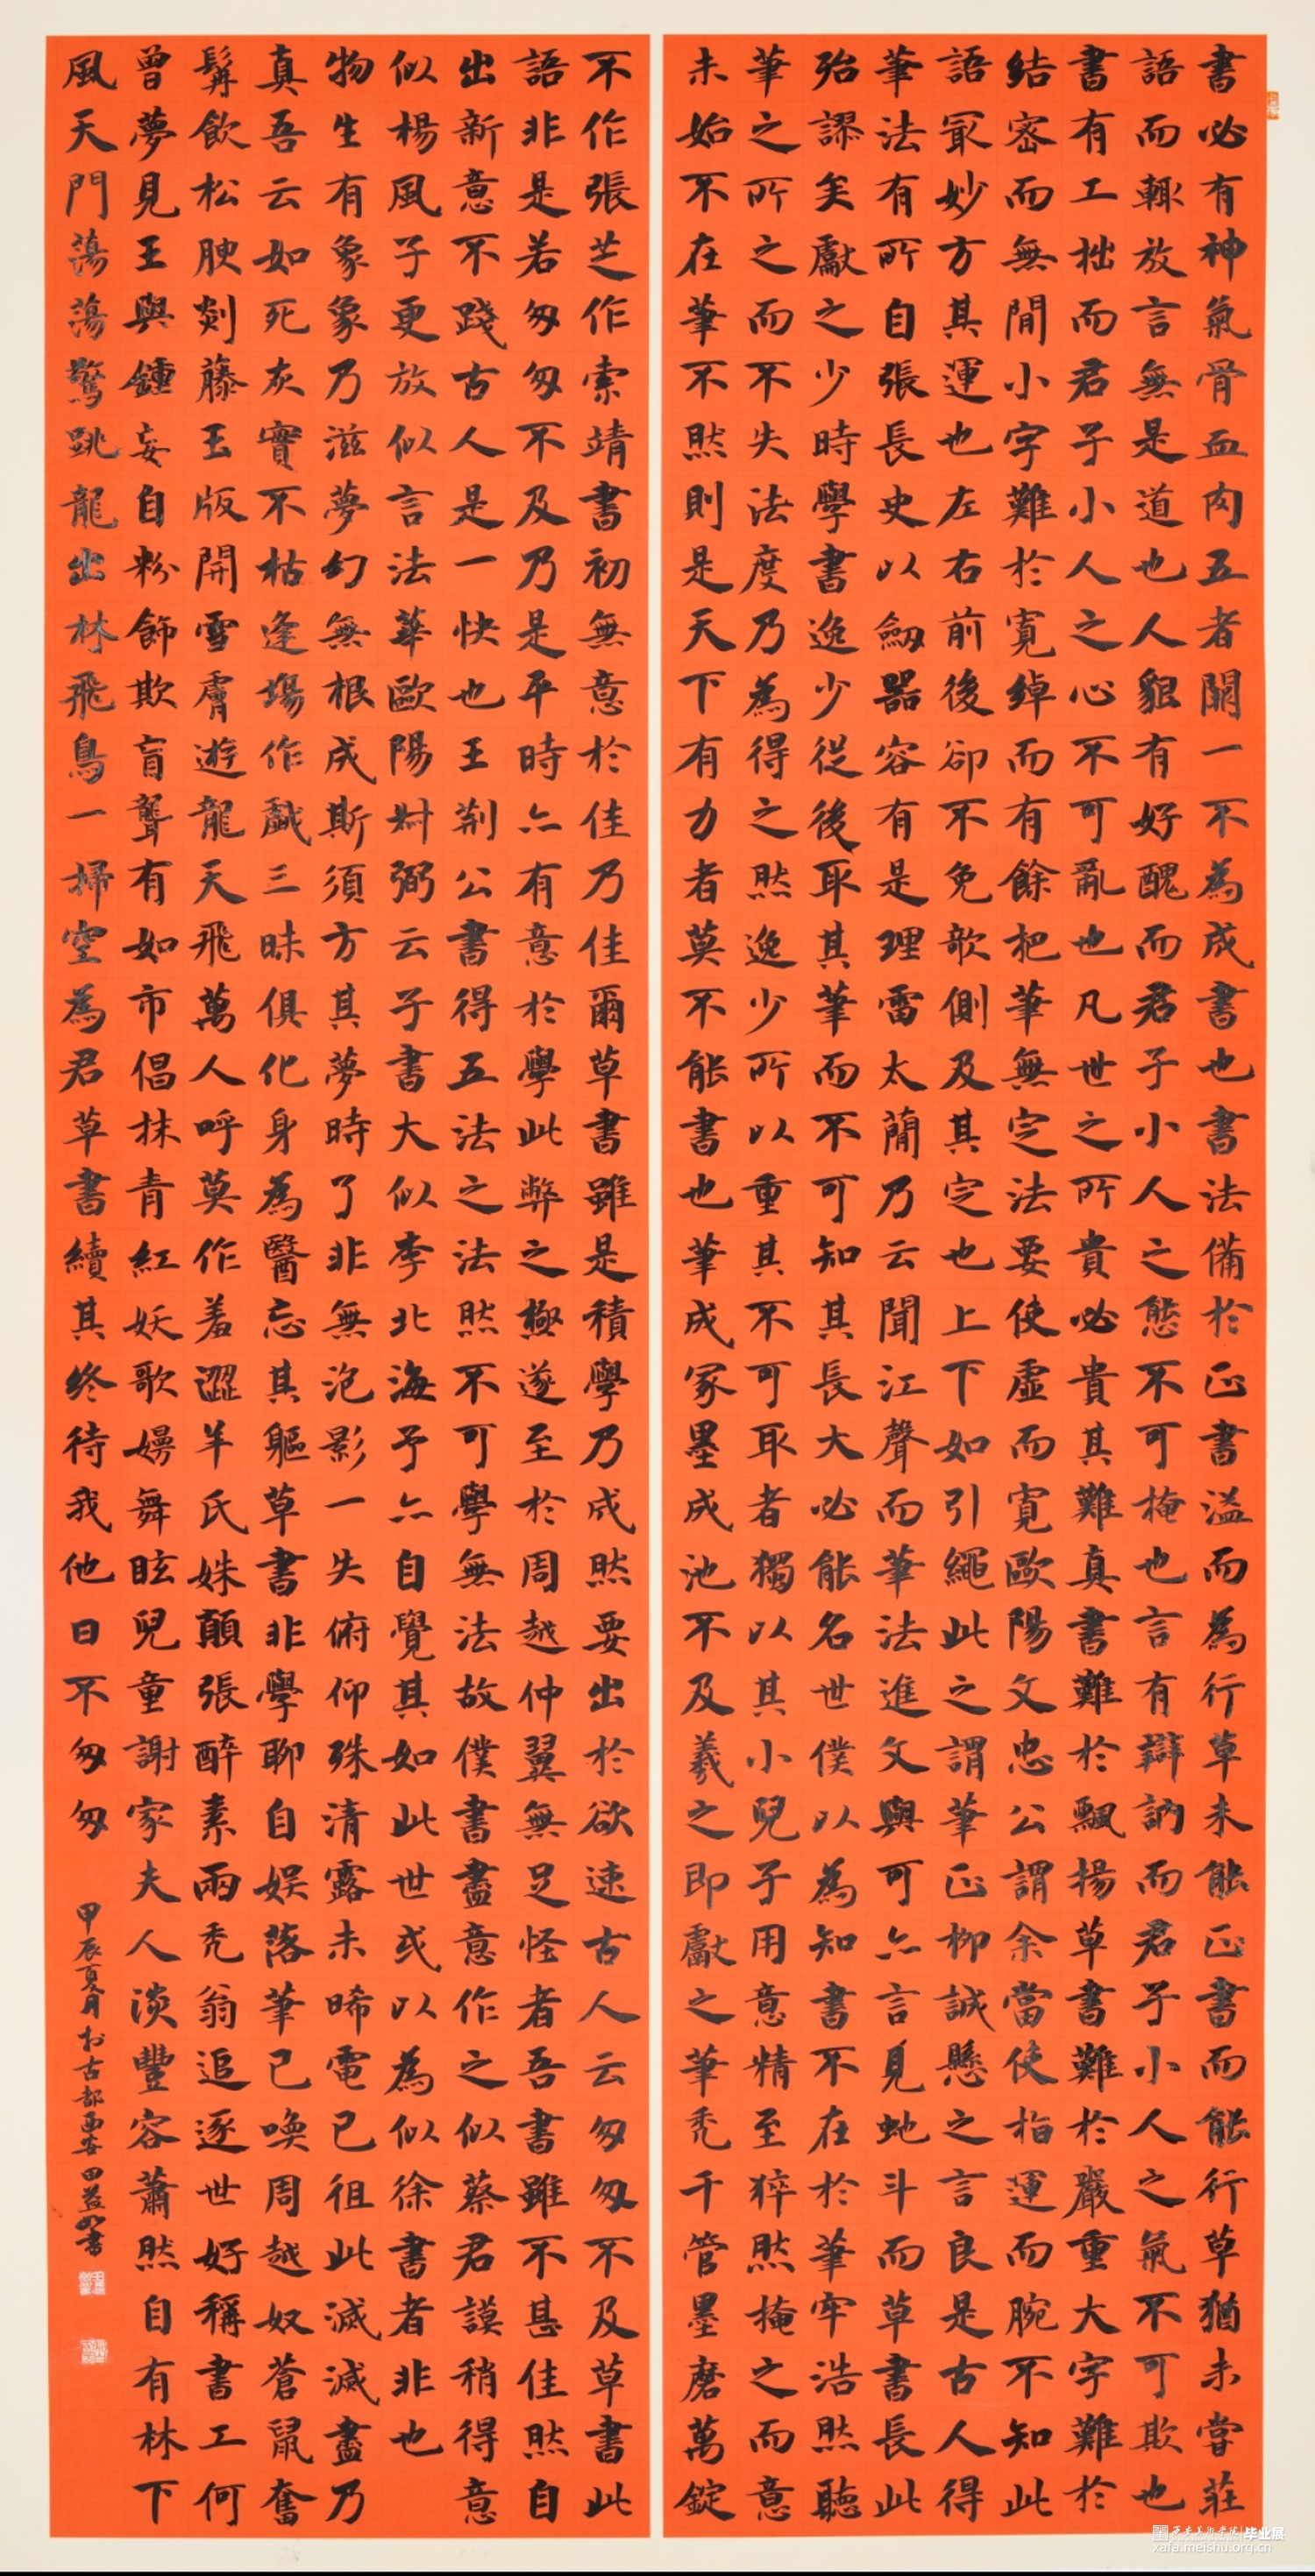 書必有神氣骨血肉五者闕一不為成書也書法備於正書溢而為行草未能正書而能行草猶未嘗莊
語而輒放言無是道也人貌有好醜而君子小人之態不可掩也言有辯訥而君子小人之氣不可欺也
書有工拙而君子小人之心不可亂也凡世之所貴必貴其難真書難於飄揚草書難於嚴重大字難於
結密而無間小字難於寬綽而有餘把筆無定法要使虛而寬歐陽文忠公謂余當使指運而腕不知此
語冣妙方其運也左右前後卻不免欹側及其定也上下如引繩此之謂筆正柳誠懸之言良是古人得
筆法有所自張長史以劒器容有是理雷太簡乃云聞江聲而筆法進文與可亦言見蛇斗而草書長此
殆謬矣獻之少時學書逸少從後取其筆而不可知其長大必能名世僕以為知書不在於筆牢浩然聽
筆之所之而不失法度乃為得之然逸少所以重其不可取者獨以其小兒子用意精至猝然掩之而意
未始不在筆不然則是天下有力者莫不能書也筆成冢墨成池不及羲之即獻之筆禿千管墨磨萬錠
不作張芝作索靖書初無意於佳乃佳爾草書雖是積學乃成然要出於欲速古人云匆匆不及草書此
語非是若匆匆不及乃是平時亦有意於學此弊之極遂至於周越仲翼無足怪者吾書雖不甚佳然自
出新意不踐古人是一快也王荊公書得五法之法然不可學無法故僕書盡意作之似蔡君謨稍得意
似楊風子更放似言法華歐陽叔弼云子書大似李北海予亦自覺其如此世或以為似徐書者非也
物生有象象乃滋夢幻無根成斯須方其夢時了非無泡影一失俯仰殊清露未晞電已徂此滅滅盡乃
真吾云如死灰實不枯逢場作戲三昧俱化身為醫忘其軀草書非學聊自娛落筆已喚周越奴蒼鼠奮
髯飲松腴剡藤玉版開雪膚遊龍天飛萬人呼莫作羞澀羊氏姝顛張醉素兩禿翁追逐世好稱書工何
曾夢見王與鍾妄自粉飾欺盲聾有如市倡抹青紅妖歌嫚舞眩兒童謝家夫人淡豐容蕭然自有林下
風天門蕩蕩驚跳龍出林飛鳥一掃空為君草書續其終待我他日不匆匆
甲辰夏月於古都西安田益書
西安美术学院 毕业展
xafa.meishu.org.cn